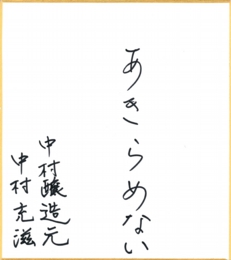 あきらめない
中村醸造元
中村充滋